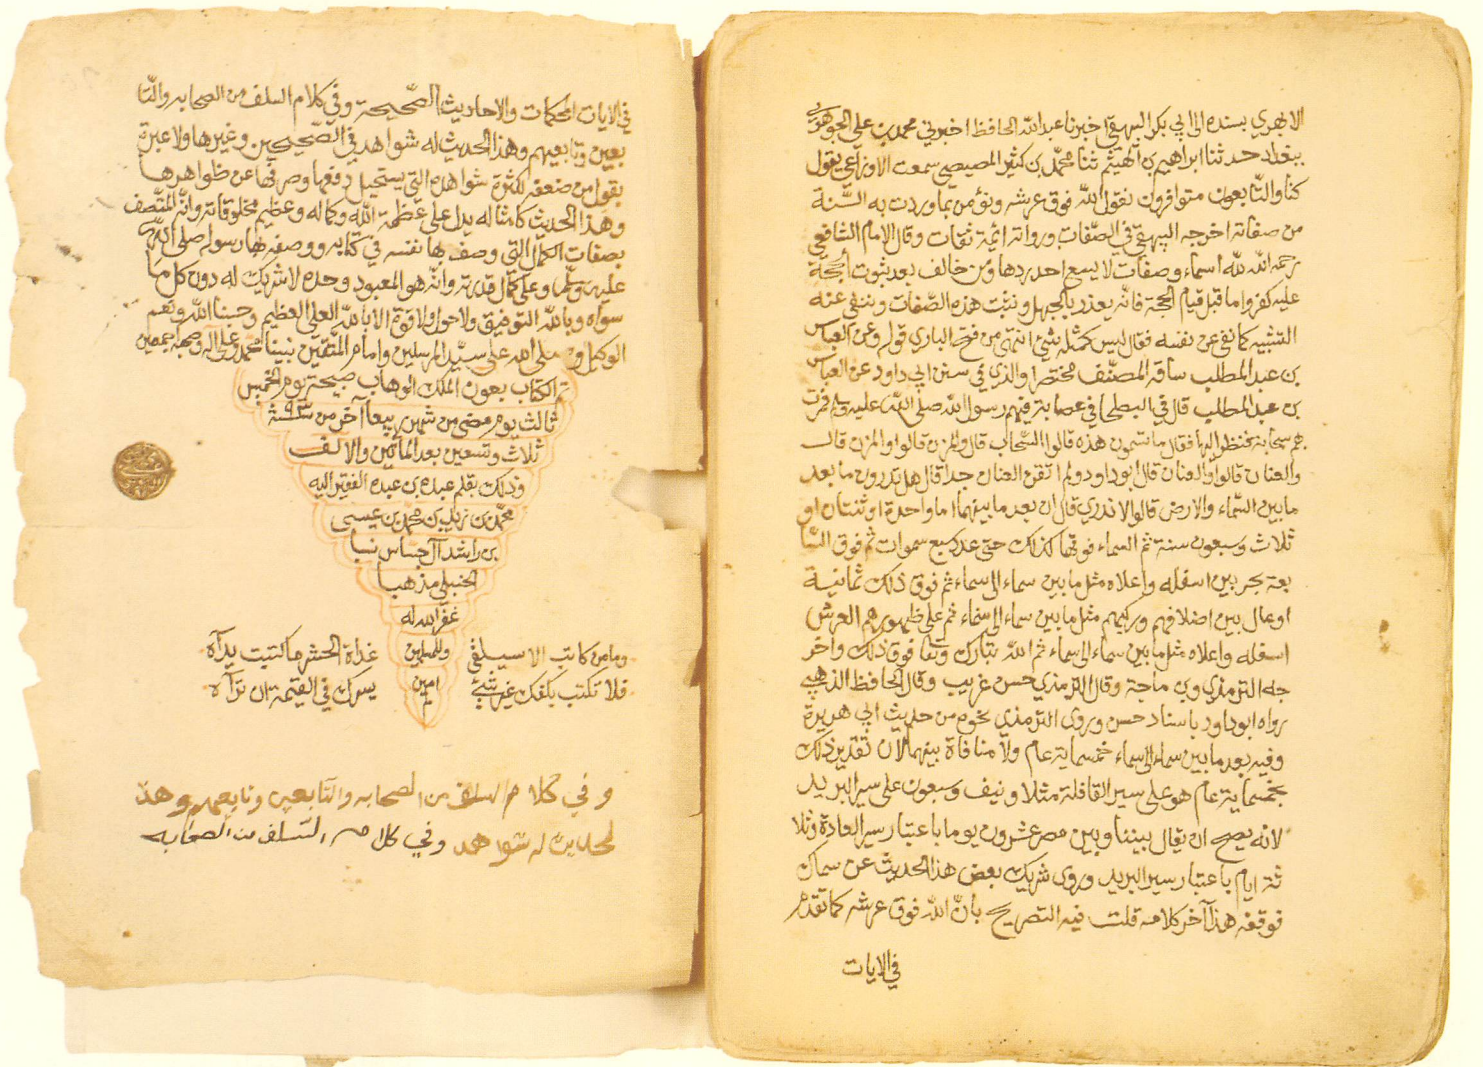 الابهري بسنده الى ابي بكر البيهقي اخبرنا عبد الله الحافظ اخبرني محمد بن علي الجوهري
ببغداد حدثنا ابراهيم بن الهيثم ثنا محمد بن كثير المصيصي سمعت الاوزاعي يقول
كنا والتابعون متوافرون نقول الله فوق عرشه ونؤمن بما وردت به السّنة
من صفاته اخرجه البيهقي في الصّفات ورواته ائمة ثقات وقال الامام الشافعي
رحمه الله لله اسماء وصفات لا يسع احد ردها ومن خالف بعد ثبوت الحجة
عليه كفر واما قبل قيام الحجة فانّه يعذر بالجهل ونثبت هذه الصّفات وننفي عنه
التشبيه كما نفى عن نفسه فقال ليس كمثله شئ انتهى من فتح الباري قوله وعن العباس
بن عبد المطلب ساقه المصنّف مختصرا والذي في سنن ابي داود عن العباس
بن عبد المطلب قال كنت في البطحا في عصابة فيهم رسول الله صلى الله عليه وسلم فمرت
بهم سحابة فنظر اليها فقال ما تسمون هذه قالوا السّحاب قال والمزن قالوا والمزن قال
والعنان قالوا والعنان قال ابو داود ولم اتقن العنان جدا قال هل تدرون ما بعد
ما بين السّماء والارض قالوا لا ندري قال ان بعد ما بينهما اما واحدة او ثنتان او
ثلاث وسبعون سنة ثم السماء فوقها كذلك حتى عد سبع سموات ثم فوق السّا
بعة بحر بين اسفله واعلاه مثل ما بين سماء الى سماء ثم فوق ذلك ثمانية
اوعال بين اظلافهم وركبهم مثل ما بين سماء الى سماء ثم على ظهورهم العرش
اسفله واعلاه مثل ما بين سماء الى سماء ثم الله تبارك وتعا فوق ذلك واخر
جه الترمذي وبن ماجة وقال الترمذي حسن غريب وقال الحافظ الذهبي
رواه ابو داود باسناد حسن وروى الترمذي نحوه من حديث ابي هريرة
وفيه بعد ما بين سماء الى سماء خمسماية عام ولا منافاة بينهما لان تقدير ذلك
بخمسماية عام هو على سير القافلة مثلا ونيف وسبعون على سير البريد
لانه يصح ان يقال بيننا وبين مصر عشرون يوما باعتبار سير العادة وثلا
ثة ايام باعتبار سير البريد وروى شريك بعض هذا الحديث عن سماك
فوقفه هذا آخر كلامه قلت فيه التصريح بانّ الله فوق عرشه كما تقدم
في الايات
في الايات المحكمات والاحاديث الصّحيحة وفي كلام السلف من الصحابه والتّا
بعين وتابعيهم وهذا الحديث له شواهد في الصّحيحين وغيرها ولا عبرة
بقول من ضعفه لكثرة شواهده التي يستحيل دفعها وصرفها عن ظواهرها
وهذا الحديث كامثاله يدل على عظمة الله وكماله وعظيم مخلوقاته وانّه المتّصف
بصفات الكمال التي وصف بها نفسه في كتابه ووصفه بها رسوله صلى الله
عليه وسلّم وعلى كمال قدرته وانّه هو المعبود وحده لا شريك له دون كل ما
سواه وبالله التوفيق ولا حول ولا قوة الا بالله العلي العظيم وحسبنا الله ونعم
الوكيل وصلى الله على سيّد المرسلين وامام المتّقين نبينا محمد وعلى اله وصحبه اجمعين
تم الكتاب بعون الملك الوهاب صبيحة يوم الخميس
ثالث يوم مضى من شهر ربيعا آخر من سنة ٩٣
ثلاث وتسعين بعد المأتين والالف
وذلك بقلم عبده بن عبده الفقير اليه
محمّد بن زيد بن محمد بن عيسى
بن راشد آل جساس نسبا
الحنبلي مذهبا
غفر الله له
وللمسلمين
امين
تم
وما من كاتب الا سيلقى غداة الحشر ما كتبت يداه
فلا تكتب بكفك غير شيئ يسرك في القيمة ان تراه
وفي كلام السلف من الصحابه والتابعين وتابعيهم وهذ
لحديث له شواهد وفي كلام السلف من الصحابه